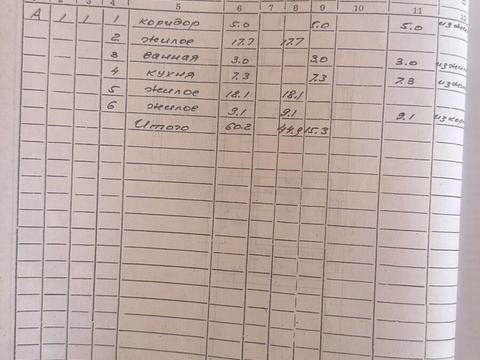 3 4 5 6 7 8 9 10 11 12
А 1 1 1 коридор 5.0 5.0 5.0
2 жилое 17.7 17.7
3 ванная 3.0 3.0 3.0
4 кухня 7.3 7.3 7.3
5 жилое 18.1 18.1
6 жилое 9.1 9.1 9.1
Итого 60.2 44.9 15.3